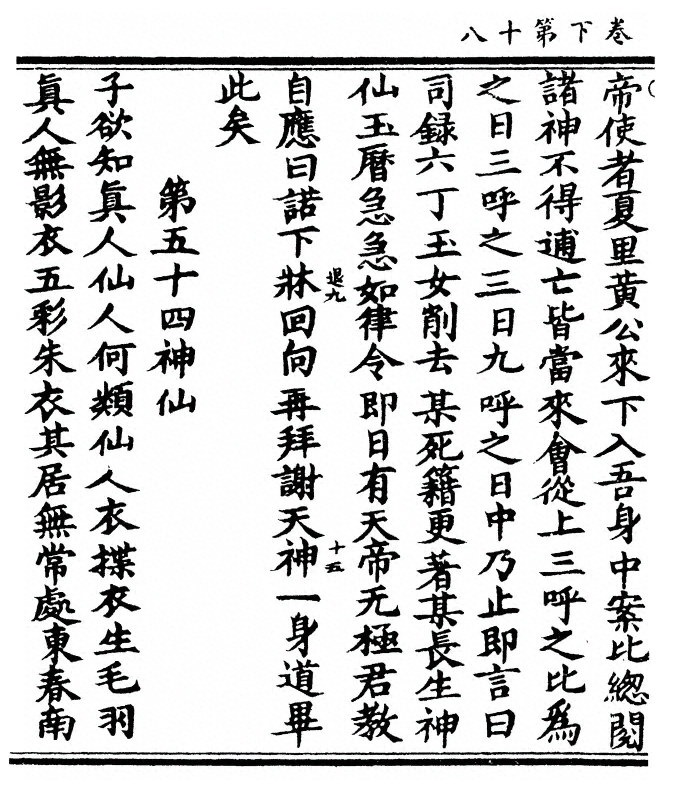 卷下第十八
帝使者夏里黃公來下入吾身中案比總閱
諸神不得逋亡皆當來會從上三呼之比爲
之日三呼之三日九呼之日中乃止即言曰
司録六丁玉女削去某死籍更著某長生神
仙玉曆急急如律令即日有天帝无極君教
退九
十五
自應曰諾下牀回向再拜謝天神一身道畢
此矣
第五十四神仙
子欲知眞人仙人何類仙人衣揲衣生毛羽
眞人無影衣五彩朱衣其居無常處東春南